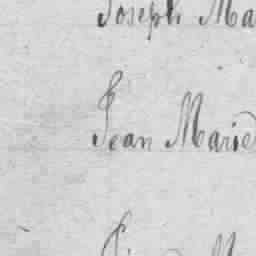 Joseph Ma
Jean Marie